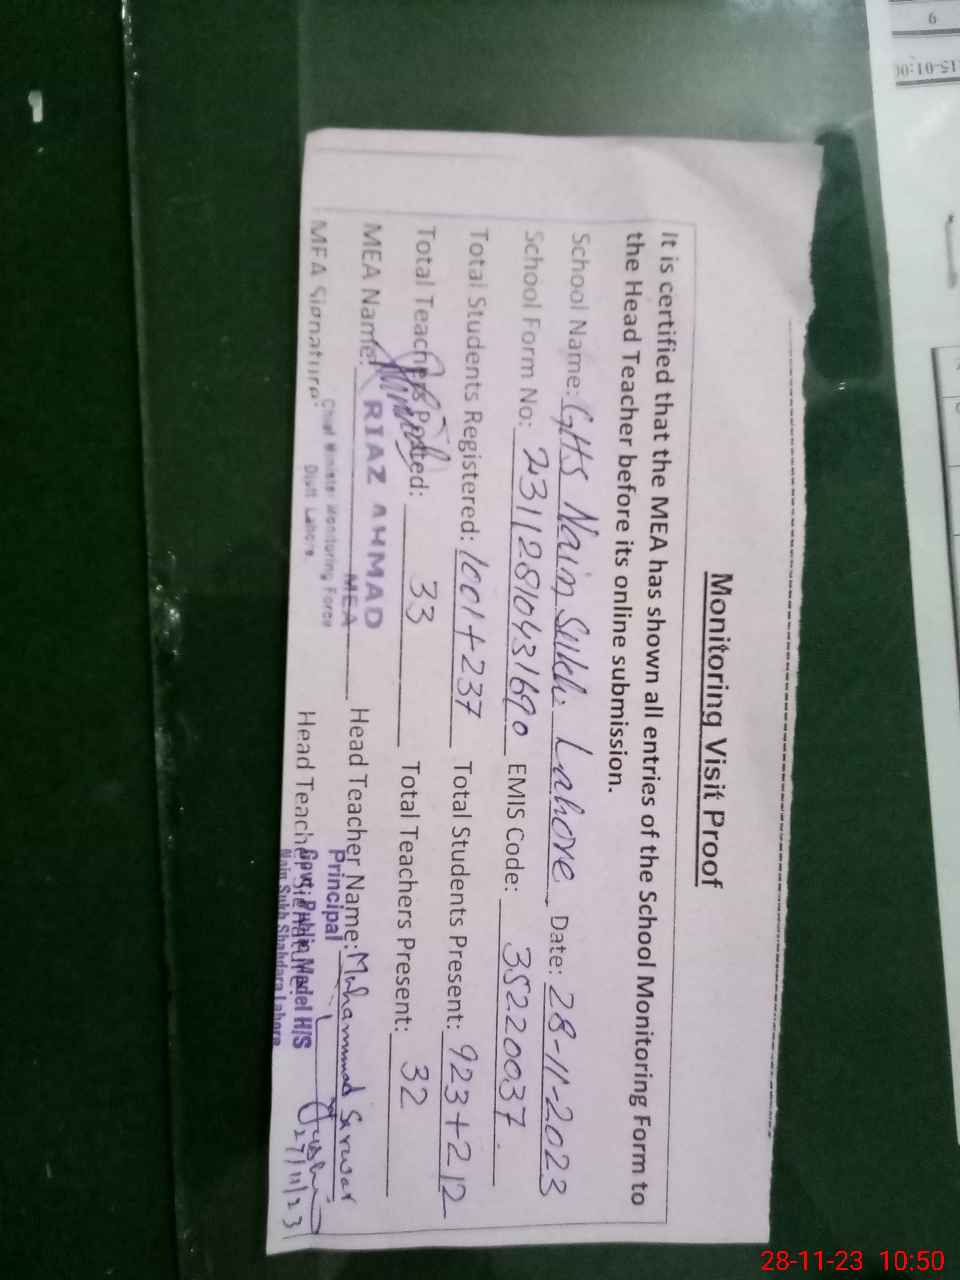 Monitoring Visit Proof
It is certified that the MEA has shown all entries of the School Monitoring Form to
the Head Teacher before its online submission.
School Name: GHS Nain Sukh Lahore Date: 28-11-2023
School Form No: 23112810431690 EMIS Code: 35220037
Total Students Registered: 1001+237 Total Students Present: 923+212
Total Teachers Posted: 33 Total Teachers Present: 32
MEA Name: RIAZ AHMAD Head Teacher Name: Muhammad Sarwar
MEA
MEA Signature: Head Teacher Signature:
Chief Minister Monitoring Force
Distt Lahore.
Principal
Govt: Public Model H/S
Nain Sukh Shahdara Lahore
27/11/23
6
15-01:00
28-11-23 10:50